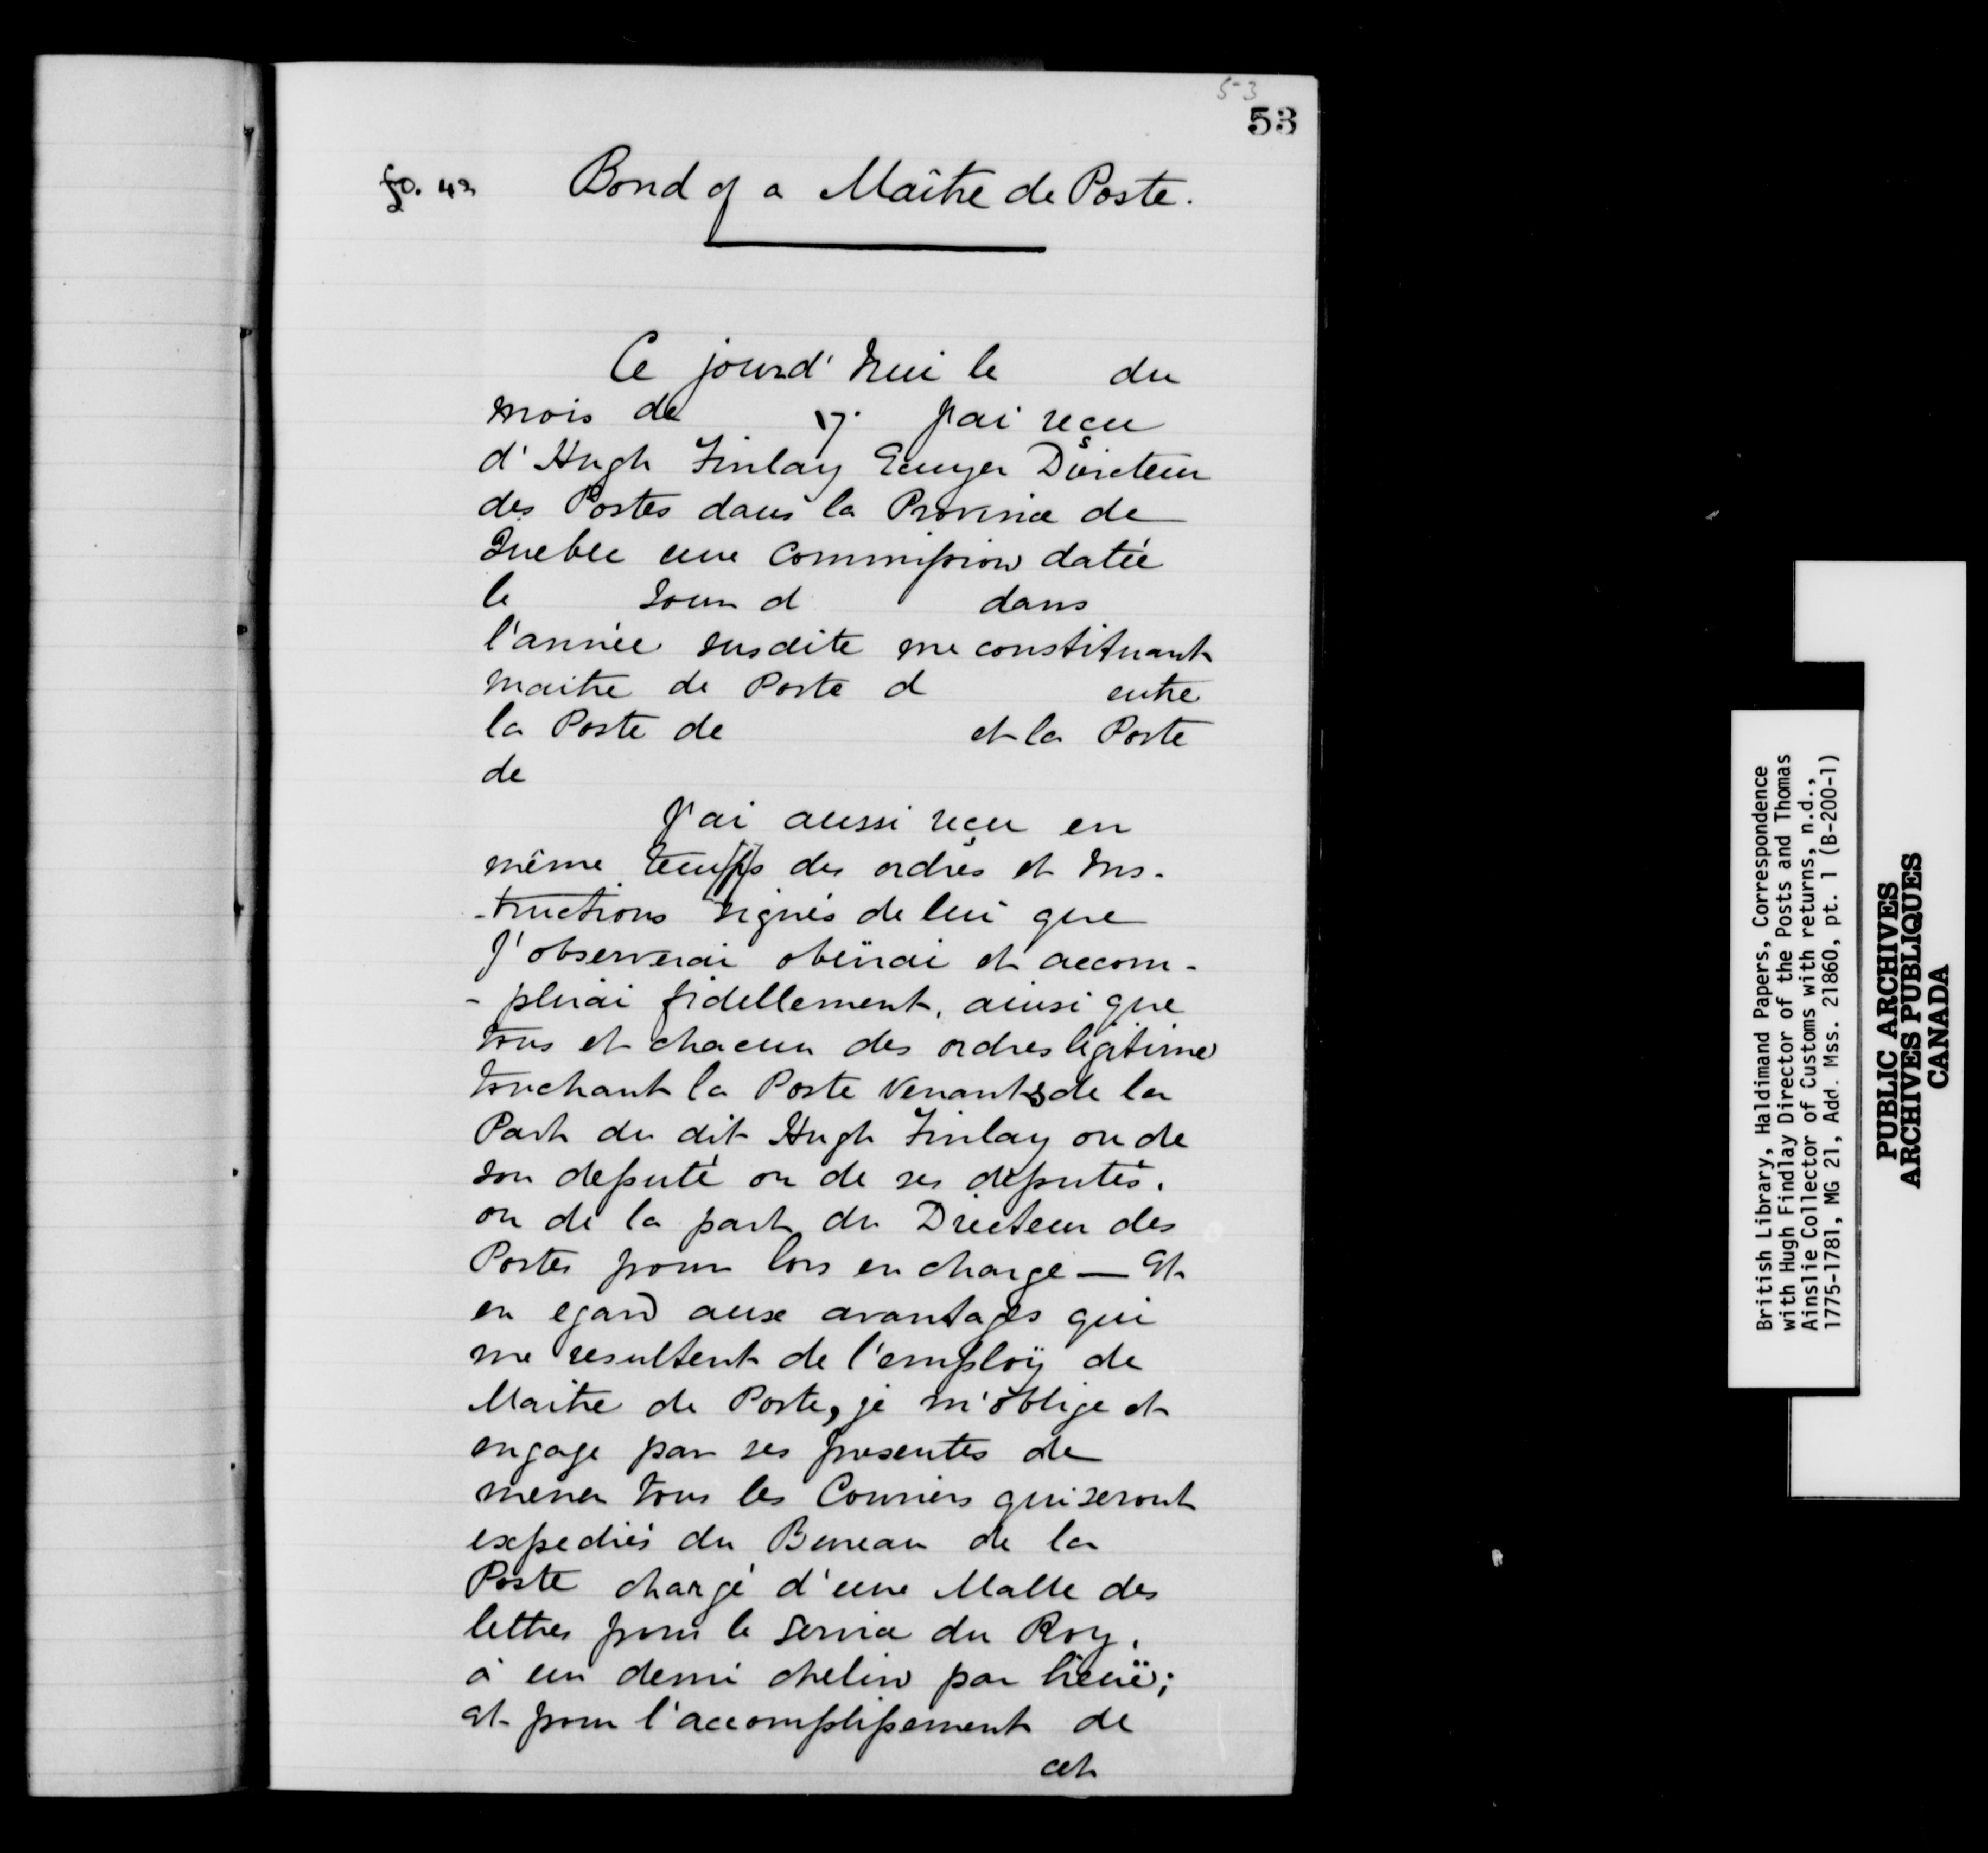 5-3
53
fo. 42 Bond of a Maître de Poste.
Ce jourd'hui le du
mois de 17. J'ai reçu
d'Hugh Finlay Ecuyer Directeur
des Postes dans la Province de
Quebec une Commission datée
le Jour d dans
l'année susdite me constituant
maitre de Poste d entre
la Poste de et la Poste
de
J'ai aussi reçu en
même temps des ordres et Ins-
-tructions signés de lui que
J'observerai obeïrai et accom-
-plirai fidellement, ainsi que
tous et chacun des ordres légitimes
touchant la Poste venants de la
Part du dit Hugh Finlay ou de
son deputé ou de ses députés.
ou de la part du Directeur des
Postes pour lors en charge — Et
en egard aux avantages qui
me resultent de l'employ de
Maitre de Poste, je m'oblige et
engage par ses presentes de
mener tous les Couriers qui seront
expediés du Bureau de la
Poste chargé d'une Malle des
lettres pour le Service du Roy,
à un demi chelin par lieuë;
et pour l'accomplissement de
cet
British Library, Haldimand Papers, Correspondence
with Hugh Findlay Director of the Posts and Thomas
Ainslie Collector of Customs with returns, n.d.,
1775-1781, MG 21, Add. Mss. 21860, pt. 1 (B-200-1)
PUBLIC ARCHIVES
ARCHIVES PUBLIQUES
CANADA